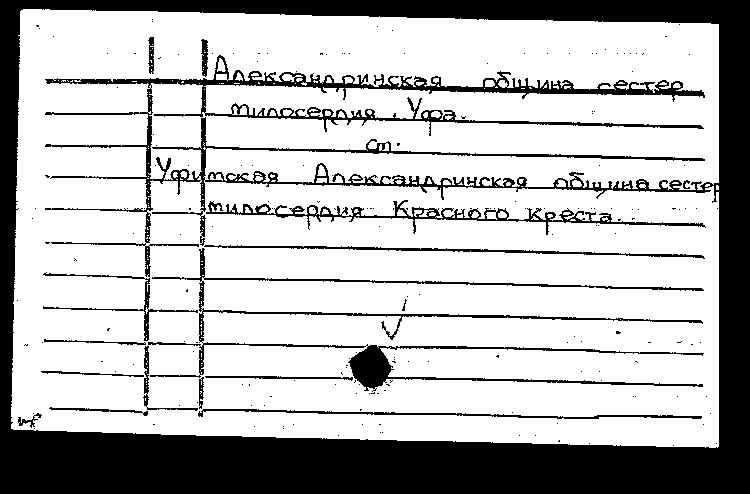 Александринская община сестер
милосердия. Уфа.
см.
Уфимская Александринская община сестер
милосердия Красного креста.